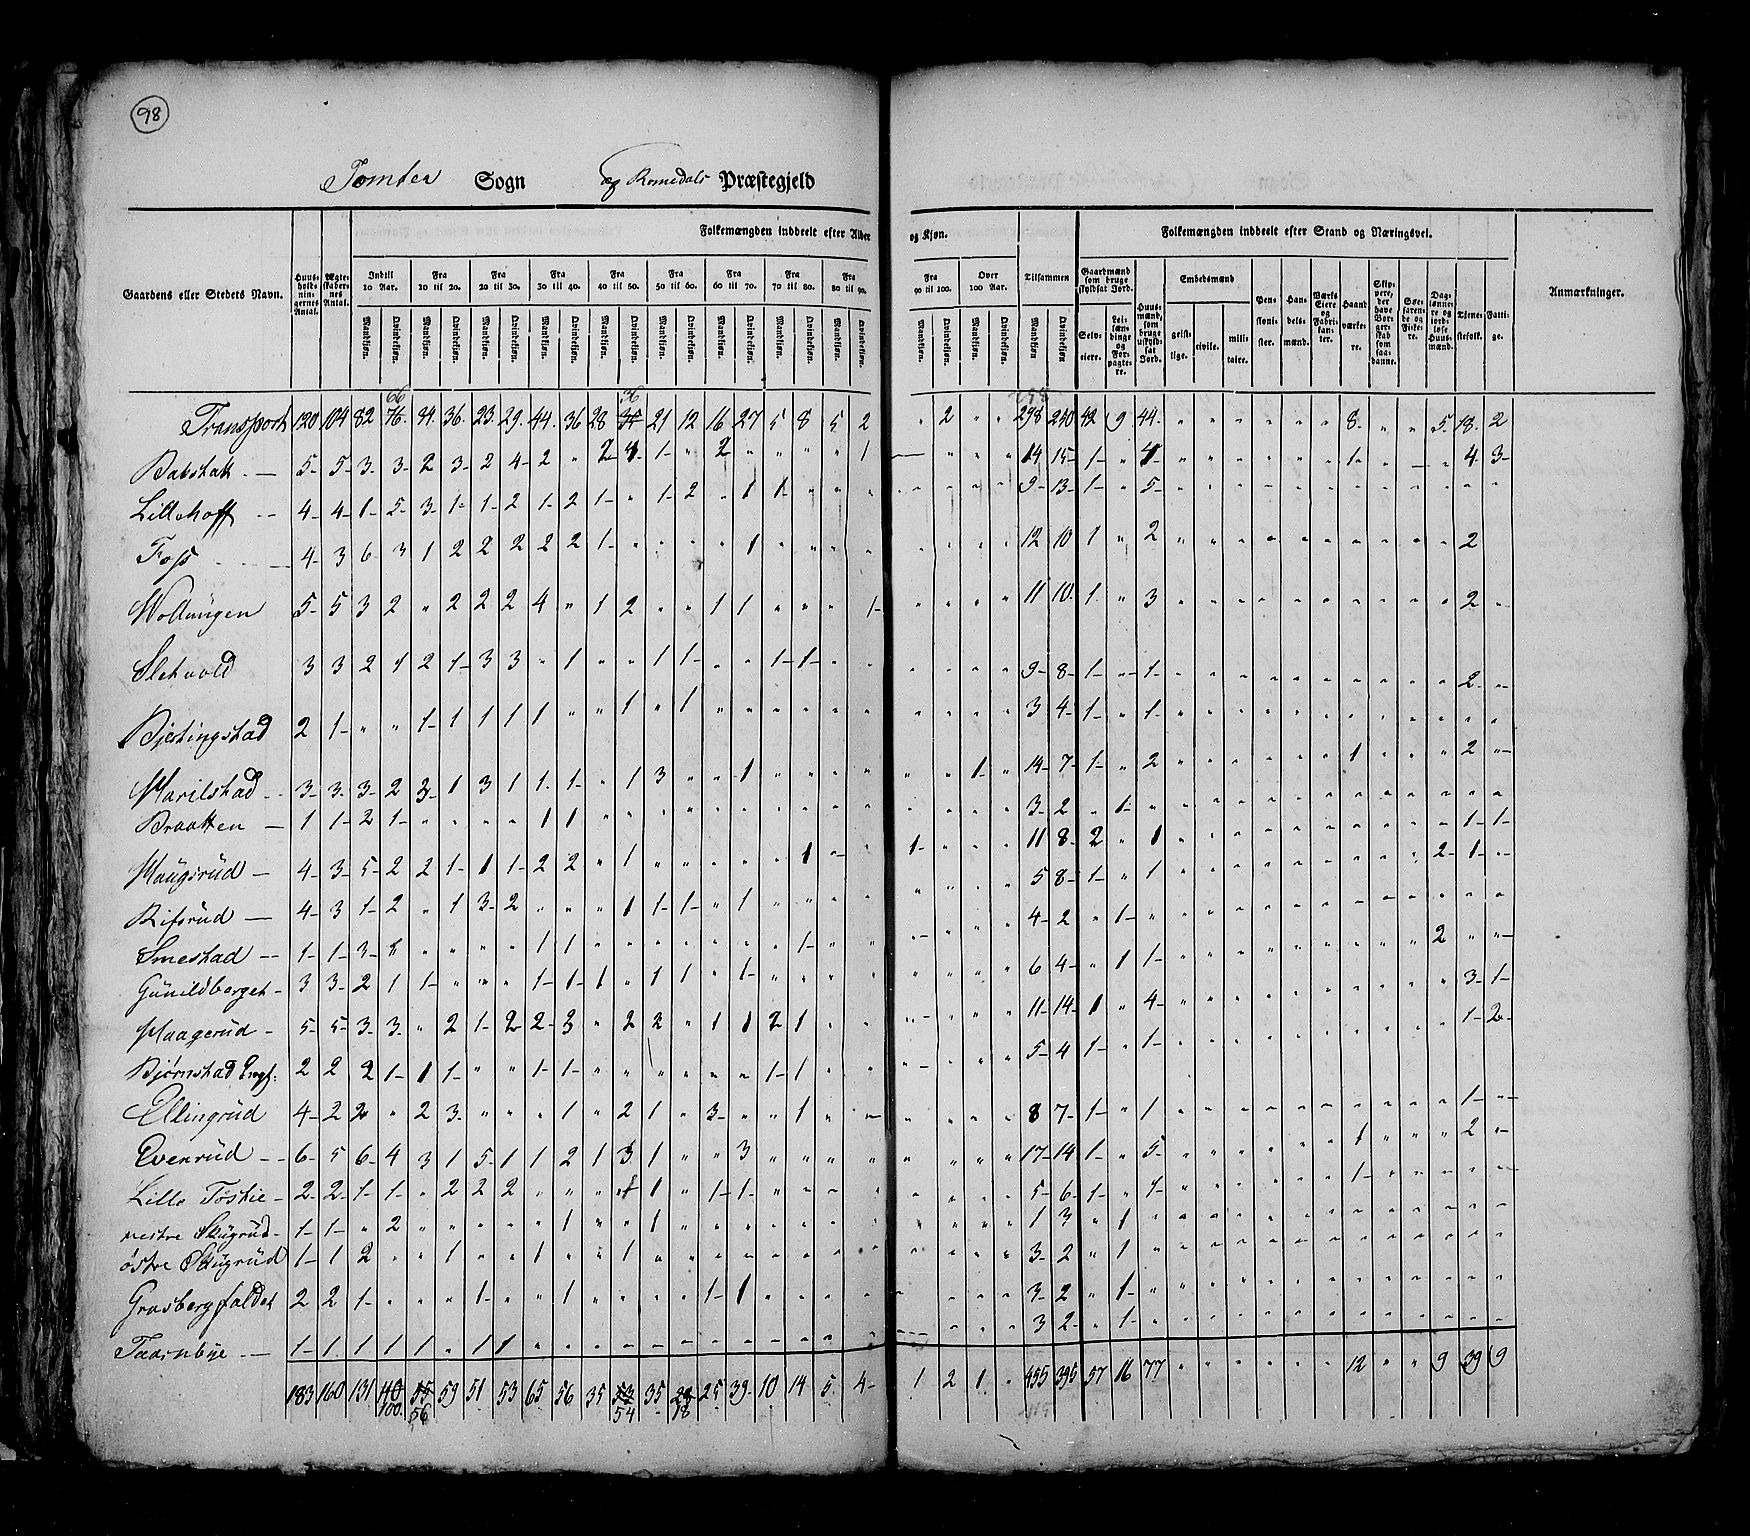 98
Tomter Sogn og Romedals Præstegjeld
Folkemængden inddeelt efter Alder og Kjøn.
Folkemængden inddeelt efter Stand og Næringsvei.
Gaardens eller Stedets Navn.
Huusholdningernes Antal.
Ægteskabernes Antal.
Indtil 10 Aar.
Fra 10 til 20.
Fra 20 til 30.
Fra 30 til 40.
Fra 40 til 50.
Fra 50 til 60.
Fra 60 til 70.
Fra 70 til 80.
Fra 80 til 90.
Fra 90 til 100.
Over 100 Aar.
Tilsammen
Mandkjøn. Qvindekjøn.
Gaardmænd som bruge skyldsat Jord.
Selveiere.
Leilændinge og Forpagtere.
Huusmænd, som bruge uskyldsat Jord.
Embedsmænd
geistlige. civile. militaire.
Pensionister.
Handelsmænd.
Værks Eiere og Fabrikanter.
Haandværkere.
Skippere, der have Borgerskab som saadanne.
Søefarende og Fiskere.
Daglønnere og jordløse Huusmænd.
Tjenestefolk.
Fattige.
Anmærkninger.
66 36
Transport 120 104 82 76 34 36 23 29 44 36 28 35 21 12 16 27 5 8 5 2 " 2 " " 298 240 42 9 44 " " " " " " 8 " " 5 18 2
Babstatt 5 5 3 3 2 3 2 4 2 " 2 1 1 " 2 " " " " 1 " " " " 14 15 1 " 4 " " " " " " 1 " " " 4 3
Lillehoff 4 4 1 5 3 1 1 2 1 2 1 " 1 2 " 1 1 " " " " " " " 9 13 1 " 5 " " " " " " " " " " " "
Foss 4 3 6 3 1 2 2 2 2 2 1 " " " " 1 " " " " " " " " 12 10 1 " 2 " " " " " " " " " " 2
Woldungen 5 5 3 2 " 2 2 2 4 " 1 2 " " 1 1 " " " 1 " " " " 11 10 1 " 3 " " " " " " " " " " 2 "
Sletvold 3 3 2 1 2 1 3 3 " 1 " " 1 1 " " 1 1 " " " " " " 9 8 1 " 1 " " " " " " " " " " 2 "
Bjertingstad 2 1 " " 1 1 1 1 1 " " 1 " 1 " " " " " " " " " " 3 4 1 " 1 " " " " " " " " " " " "
Harilstad 3 3 3 2 3 1 3 1 1 1 " 1 3 " " 1 " " " " " " 1 " 14 7 1 " 2 " " " " " " 1 " " " 2 "
Braatten 1 1 2 1 " " " " 1 1 " " " " " " " " " " " " " " 3 2 " 1 " " " " " " " " " " " " "
Haugsrüd 4 3 5 2 2 1 1 1 2 2 " 1 " " " " " 1 " " 1 " " " 11 8 2 " 1 " " " " " " " " " " 1 1
Rifsrüd 4 3 1 2 " 1 3 2 " " " 1 1 1 " 1 " " " " " " " " 5 8 1 " 1 " " " " " " " " " 2 1 "
Smestad 1 1 3 1 " " " " 1 1 " " " " " " " " " " " " " " 4 2 " 1 " " " " " " " " " " " " "
Gunildberget 3 3 2 1 1 " " " 1 1 1 " 1 1 " 1 " 1 " " " " " " 6 4 " 1 1 " " " " " " " " " 2 " "
Haagerüd 5 5 3 3 " 2 1 2 2 3 " 2 2 " 1 1 2 1 " " " " " " 11 14 1 " 4 " " " " " " " " " " 3 1
Bjørnstad Engf: 2 2 2 1 1 1 " " 1 1 " " " " " " 1 1 " " " " " " 5 4 1 " 1 " " " " " " " " " " 1 2
Ellingrüd 4 2 2 " 2 3 " " " 1 " 2 1 " 3 " " 1 " " " " " " 8 7 1 " 1 " " " " " " " " " " 1 "
Evenrüd 6 5 6 4 3 1 5 1 1 2 1 3 1 " " 3 " " " " " " " " 17 14 1 " 5 " " " " " " 1 " " " 2 "
Lille Toskie 2 2 1 1 " 2 2 2 " " " 1 1 " 1 1 " " " " " " " " 5 6 1 " 1 " " " " " " 1 " " " " "
vestre Skügrüd 1 1 " 2 " " " " " 1 " " 1 " " " " " " " " " " " 1 3 " 1 " " " " " " " " " " " " "
østre Skügrüd 1 1 2 " " 1 " " 1 " " 1 " " " " " " " " " " " " 3 2 " 1 " " " " " " " " " " " " "
Grasbergfaldet 2 2 1 " " " 1 " " 1 " " " " 1 1 " " " " " " " " 3 2 " 1 " " " " " " " " " " " " "
Taarnbye 1 1 1 1 1 " 1 1 " " " " " " " " " " " " " " " " 3 2 " 1 " " " " " " " " " " " " "
183 160 131 110 55 59 51 53 65 56 35 53 35 28 25 39 10 14 5 4 1 2 1 " 455 395 57 16 77 " " " " " " 12 " " 9 39 9
100 56 54 18